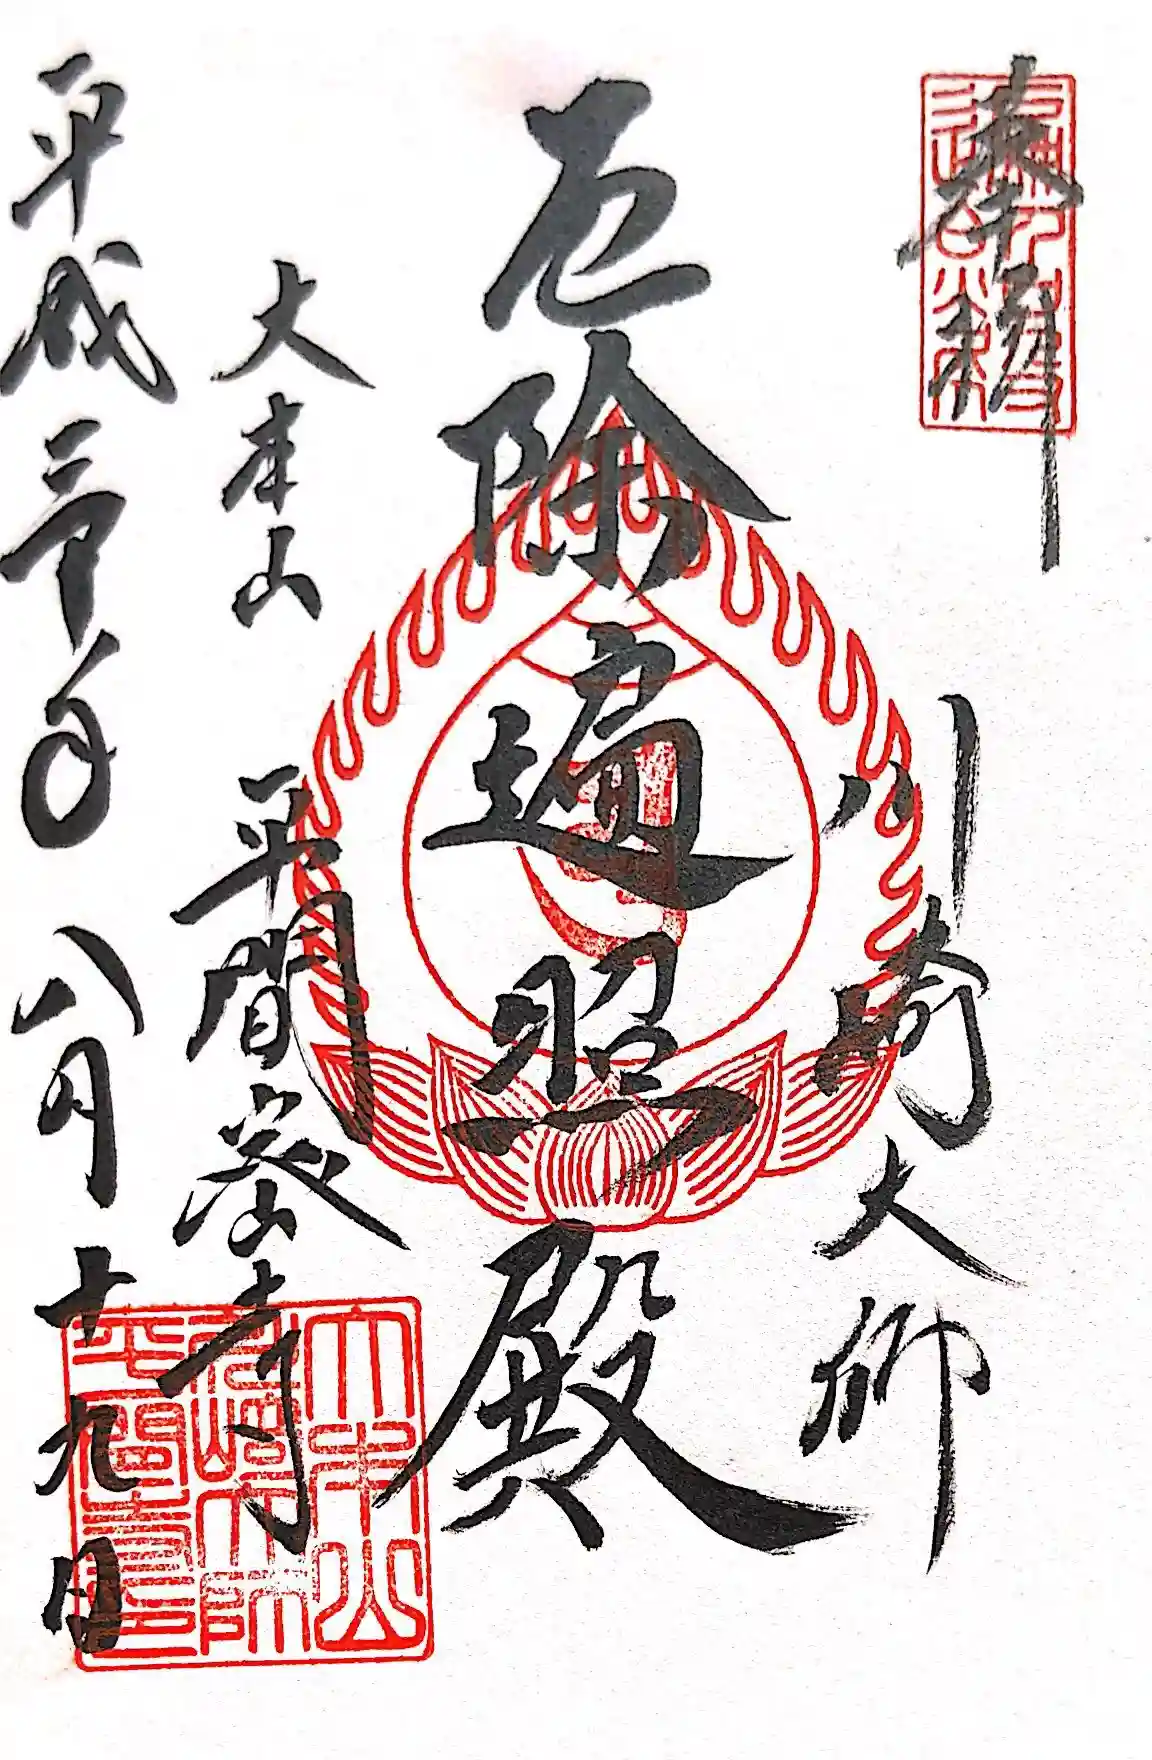 奉拝
川崎大師
厄除遍照殿
大本山
平間寺
平成三十年八月十九日
大本山
川崎大師
平間寺印